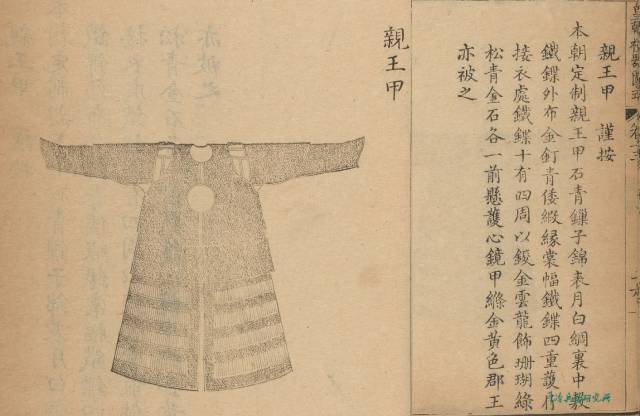 皇朝禮器圖式
親王甲 謹按
本朝定制親王甲石青鏁子錦表月白綢裏中敷
鐵鍱外布金釘青倭緞緣裳幅鐵鍱四重護肩
接衣處鐵鍱十有四周以鋄金雲龍飾珊瑚綠
松青金石各一前懸護心鏡甲絛金黃色郡王
亦被之
親王甲
冷兵器研究所